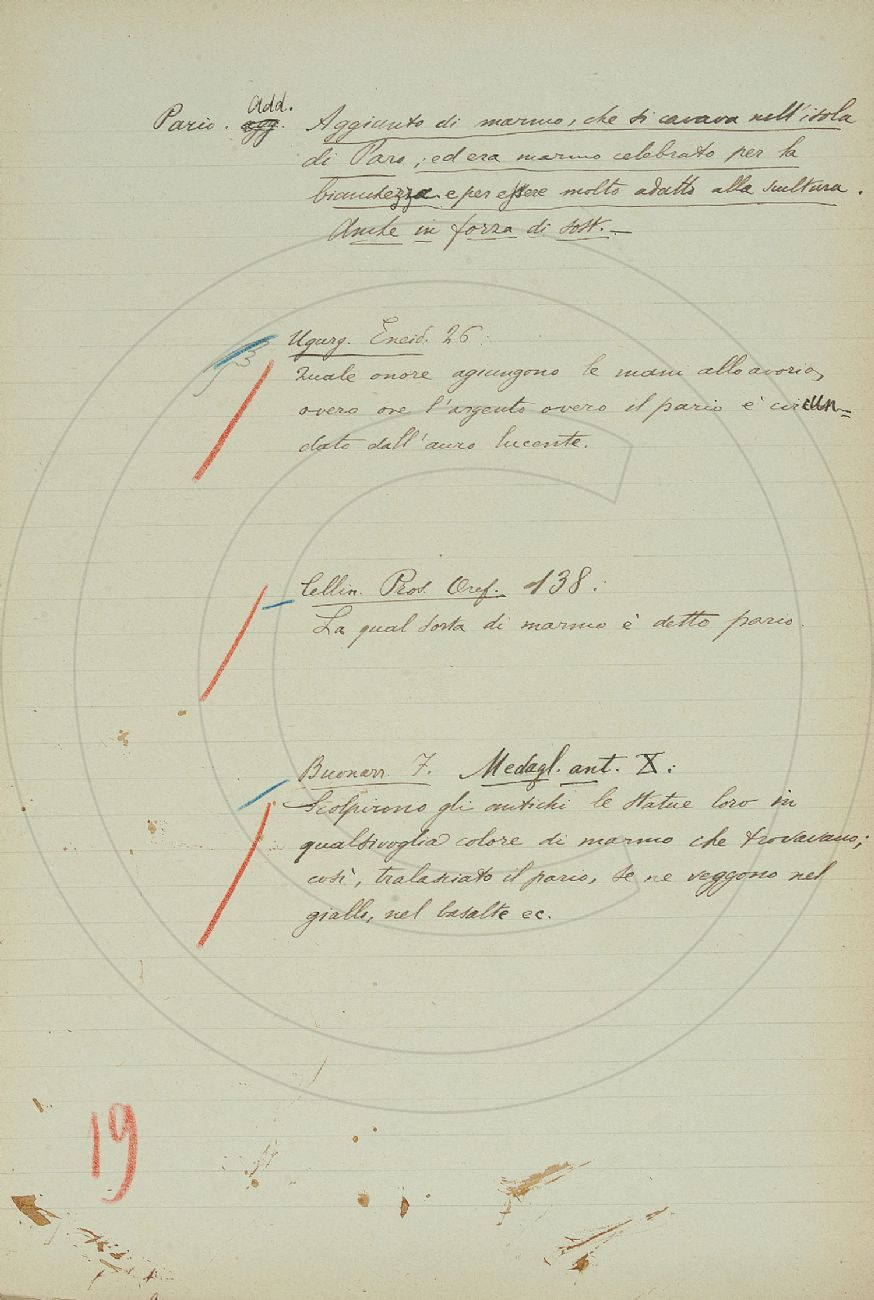 Pario. Add. Aggiunto di marmo, che si cavava nell'isola
di Paro, ed era marmo celebrato per la
bianchezza e per essere molto adatto alla scultura.
Anche in forza di sost. –
Ugurg. Eneid. 26:
Quale onore agiungono le mani allo avorio,
overo ove l'argento overo il pario è circun=
dato dall'auro lucente.
Cellin. Pros. Oref. 138:
La qual sorta di marmo è detto pario.
Buonarr. F. Medagl. ant. X:
Scolpirono gli antichi le statue loro in
qualsivoglia colore di marmo che trovavano;
così, tralasciato il pario, se ne veggono nel
giallo, nel basalte ec.
19